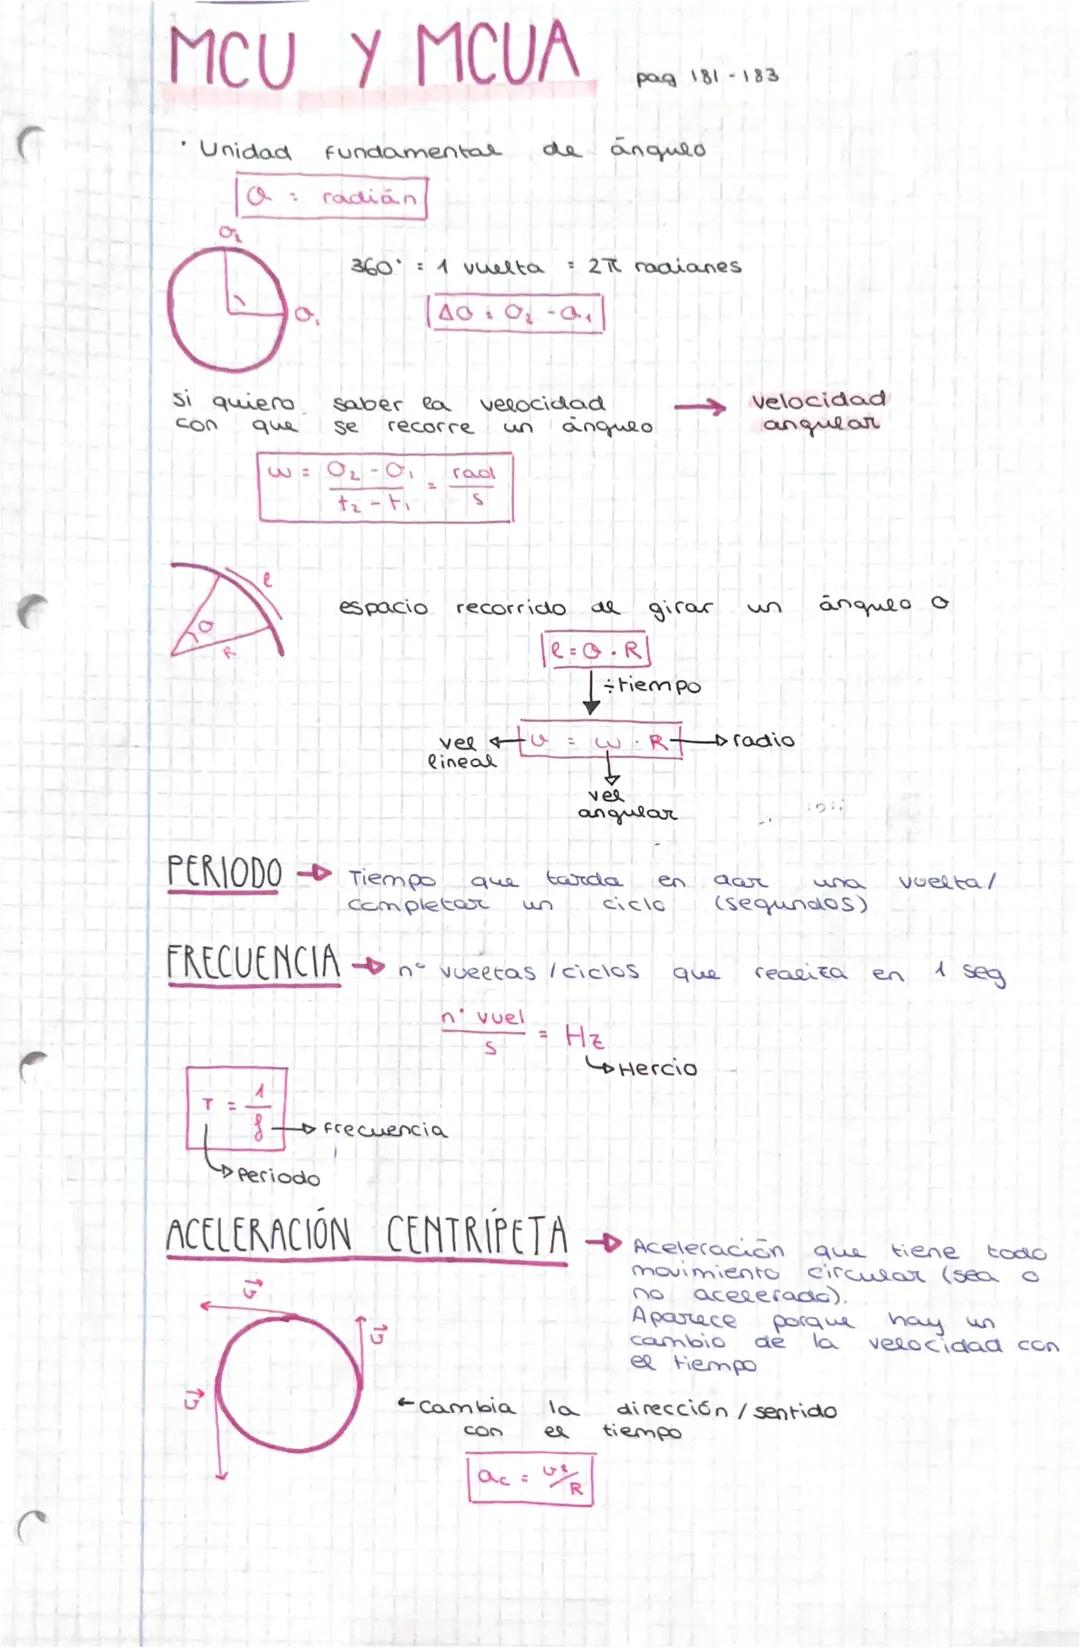 MCU Y MCUA
pag 181-183
· Unidad fundamental de ángulo
θ = radián
θ₂
360° = 1 vuelta = 2π radianes
θ₁
Δθ = θ₂ - θ₁
si quiero saber la velocidad → velocidad
con que se recorre un ángulo angular
ω = θ₂ - θ₁ / t₂ - t₁ = rad / s
l
θ
R
espacio recorrido de girar un ángulo θ
l = θ · R
÷ tiempo
vel lineal ← v = ω · R → radio
vel
angular
PERIODO → Tiempo que tarda en dar una vuelta/
completar un ciclo (segundos)
FRECUENCIA → nº vueltas /ciclos que realiza en 1 seg
nº vuel / s = Hz
↳ Hercio
T = 1 / f → frecuencia
↳ Periodo
ACELERACIÓN CENTRÍPETA → Aceleración que tiene todo
movimiento circular (sea o
no acelerado).
Aparece porque hay un
cambio de la velocidad con
el tiempo
v⃗
v⃗
v⃗
← cambia la dirección / sentido
con el tiempo
ac = v²/R